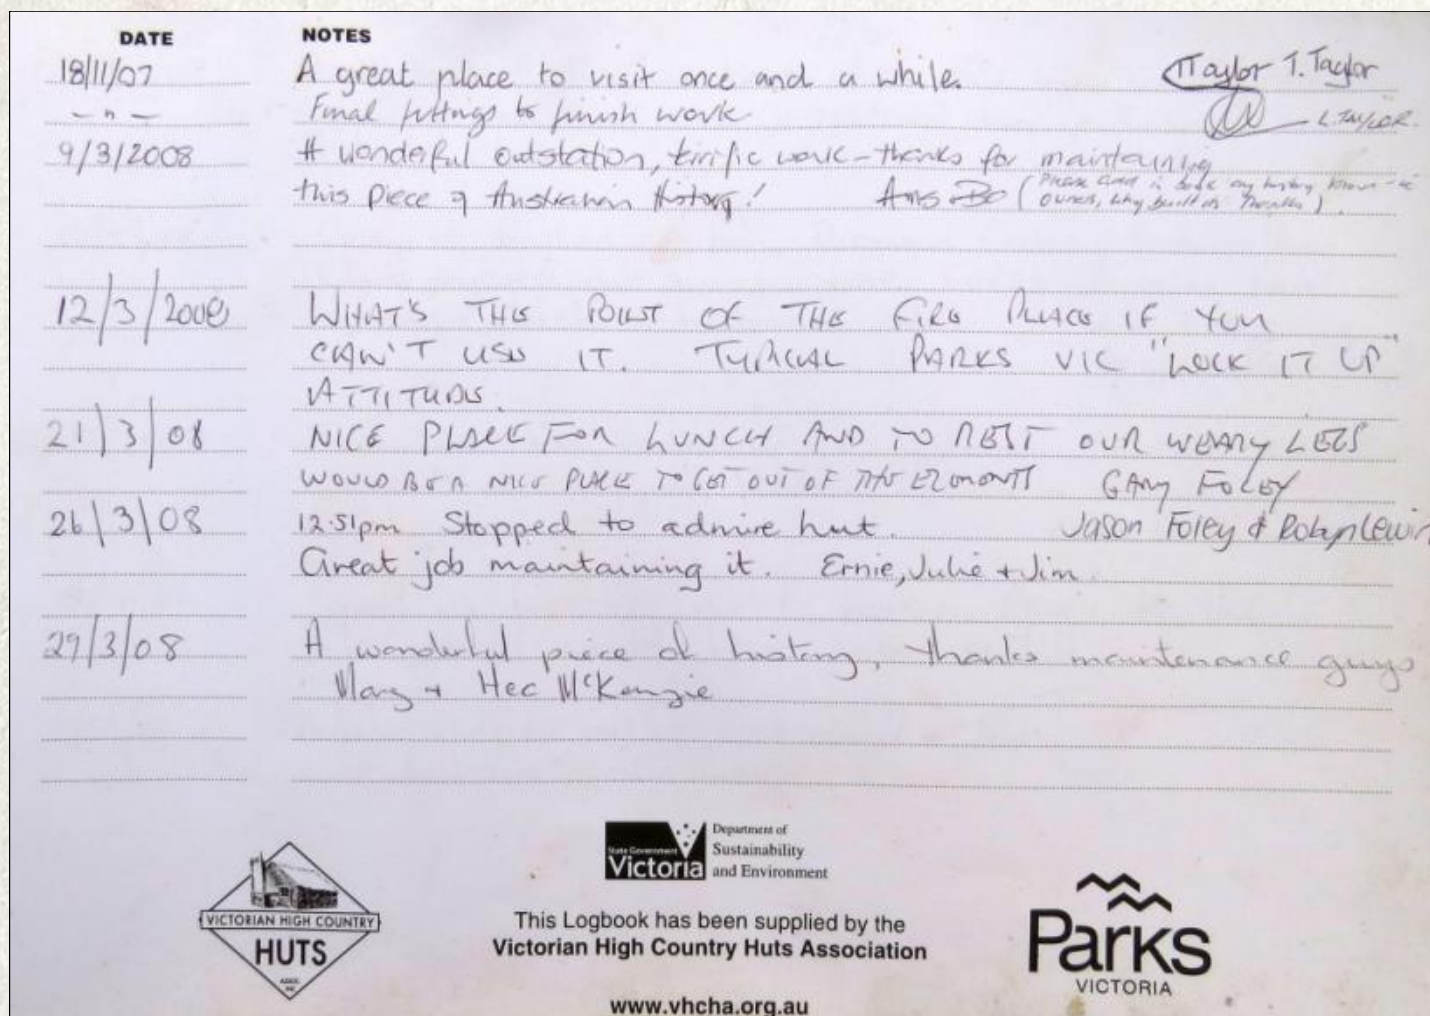 DATE NOTES
18/11/07 A great place to visit once and a while. TTaylor T. Taylor
— " — Final fittings to finish work L TAYLOR.
9/3/2008 A wonderful outstation, terrific work - thanks for maintaining
this piece of Australian history! (Please in book any history known
owners, why built etc Thanks)
12/3/2008 WHAT'S THE POINT OF THE FIRE PLACE IF YOU
CAN'T USE IT. TYPICAL PARKS VIC "LOCK IT UP"
ATTITUDE.
21/3/08 NICE PLACE FOR LUNCH AND TO REST OUR WEARY LEGS
WOULD BE A NICE PLACE TO GET OUT OF THE ELEMENTS GARY FOLEY
26/3/08 12.51pm Stopped to admire hut. Jason Foley & Robyn Lewin
Great job maintaining it. Ernie, Julie + Jim.
29/3/08 A wonderful piece of history, thanks maintenance guys
Marg + Hec McKenzie
VICTORIAN HIGH COUNTRY
HUTS
ASSOC
INC
State Government
Victoria
Department of
Sustainability
and Environment
This Logbook has been supplied by the
Victorian High Country Huts Association
www.vhcha.org.au
Parks
VICTORIA